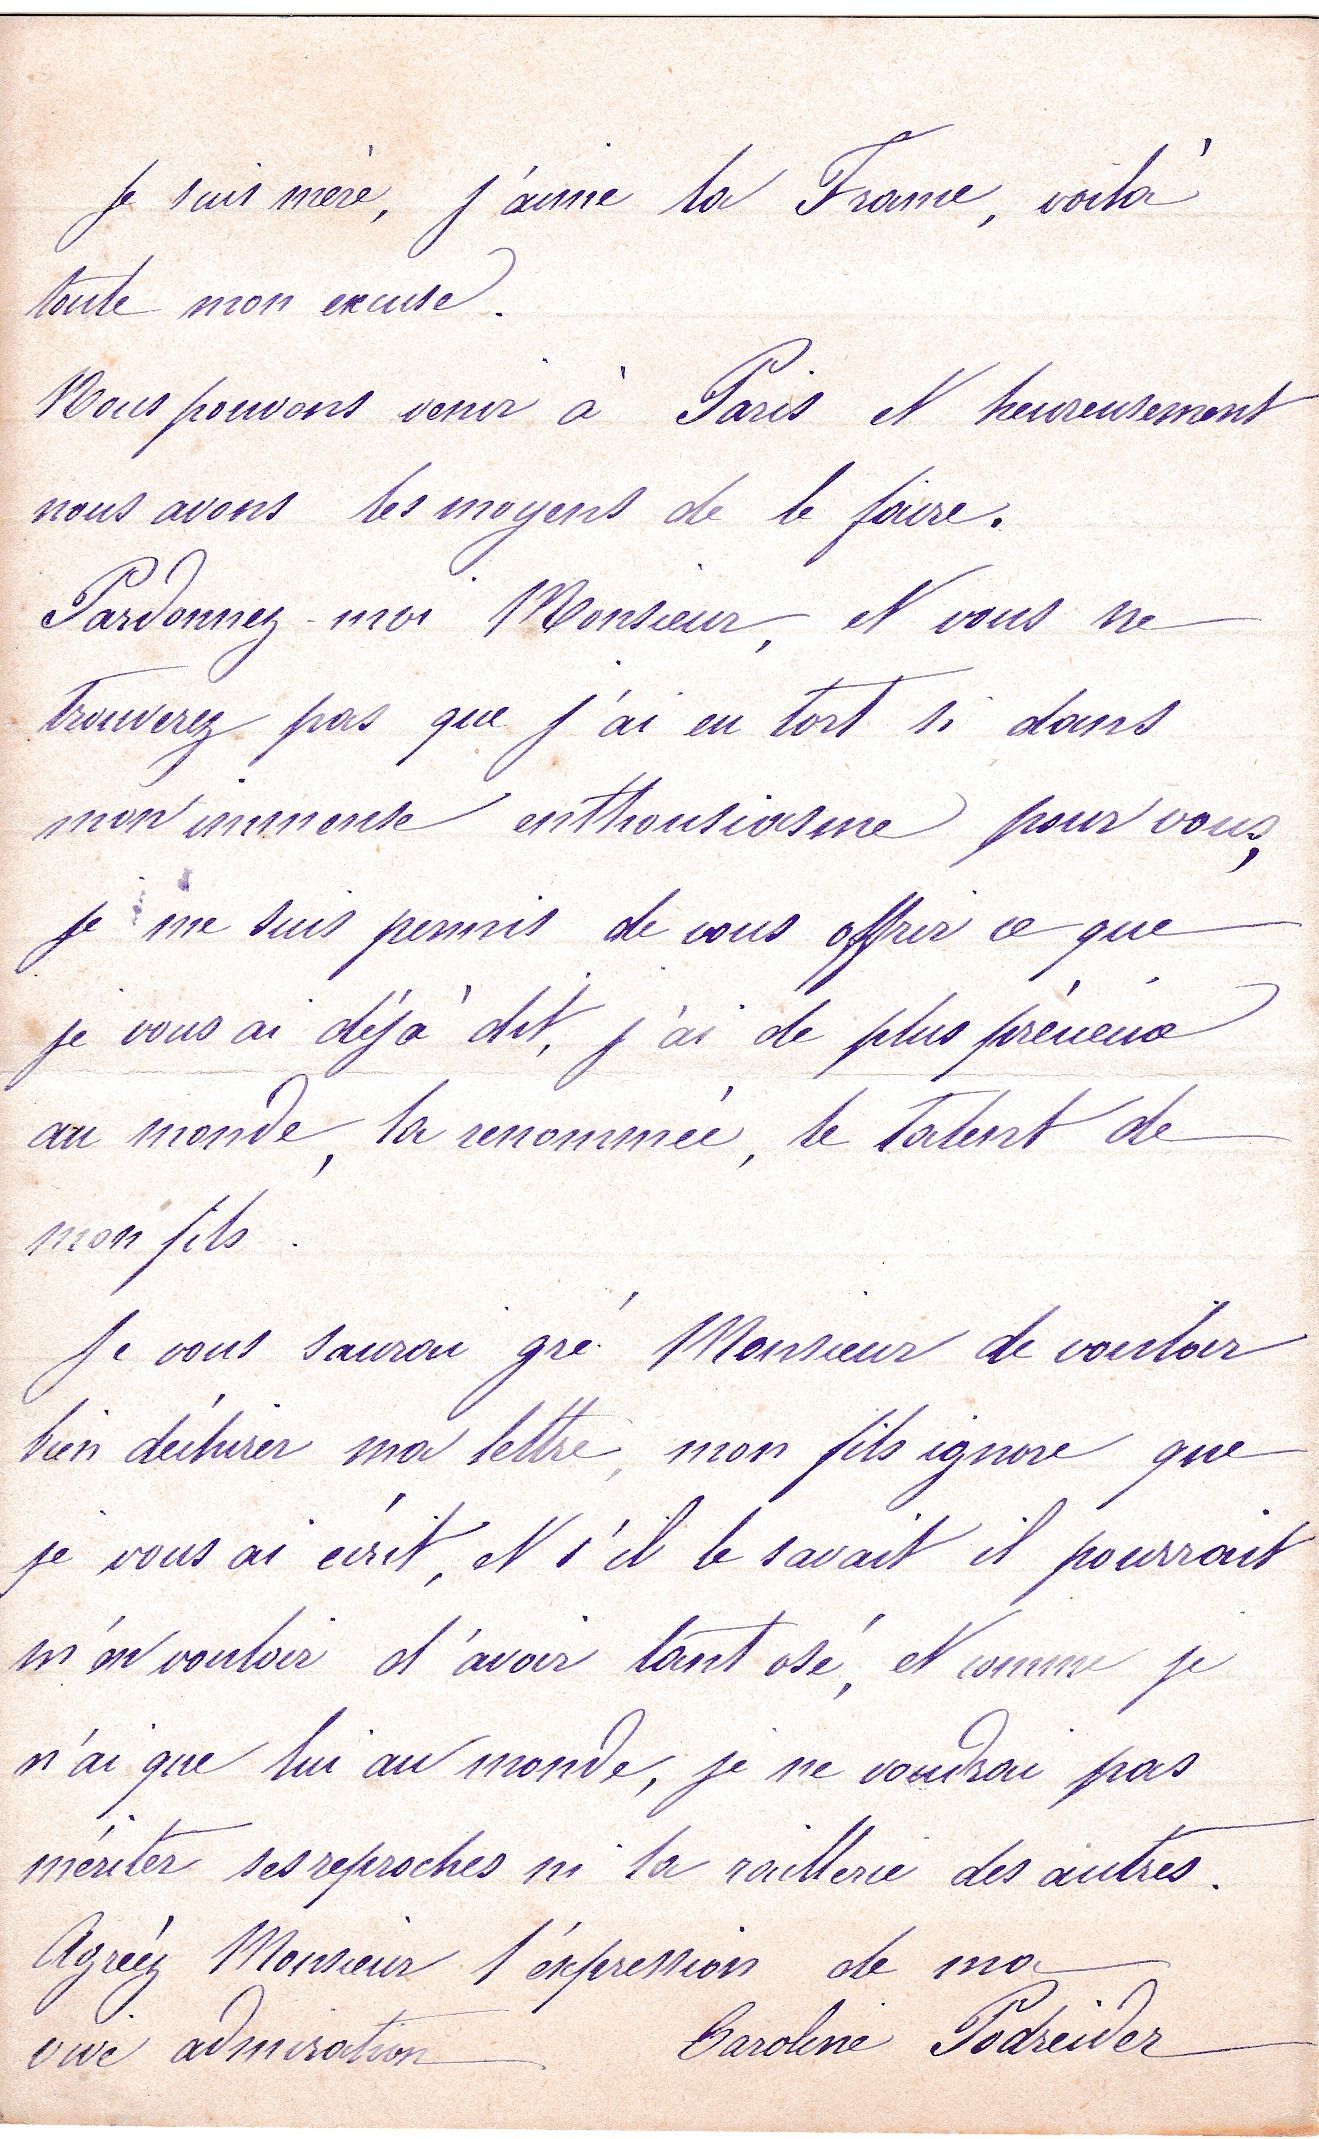 Je suis mère, j'aime la France, voilà
toute mon excuse.
Nous pouvons venir à Paris et heureusement
nous avons les moyens de le faire.
Pardonnez-moi Monsieur, et vous ne
trouverez pas que j'ai eu tort si dans
mon immense enthousiasme pour vous,
je me suis permis de vous offrir ce que
je vous ai déjà dit, j'ai de plus précieux
au monde, la renommée, le talent de
mon fils.
Je vous saurai gré Monsieur de vouloir
bien déchirer ma lettre, mon fils ignore que
je vous ai écrit, et s'il le savait il pourrait
m'en vouloir d'avoir tant osé, et comme je
n'ai que lui au monde, je ne voudrai pas
mériter ses reproches ni la raillerie des autres.
Agréez Monsieur l'éxpression de ma
vive admiration
Caroline Podreider